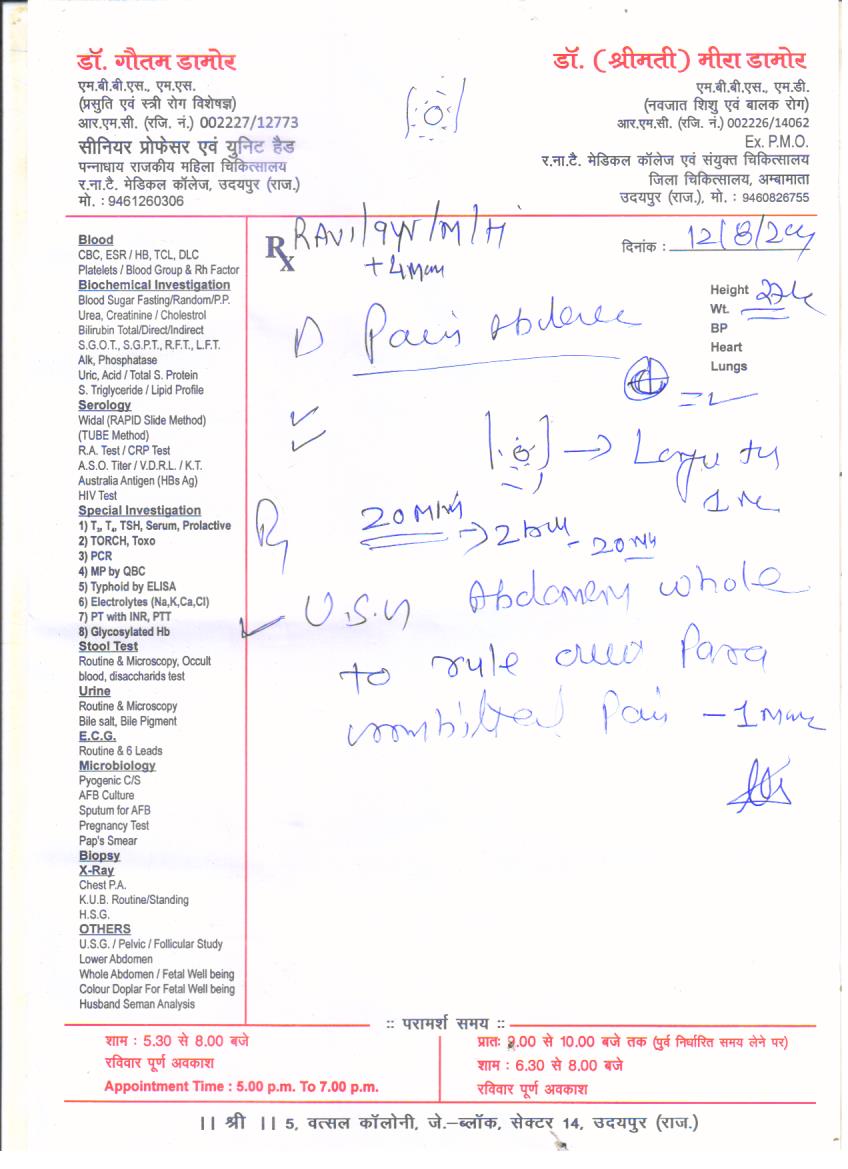 डॉ. गौतम डामोर
एम.बी.बी.एस., एम.एस.
(प्रसुति एवं स्त्री रोग विशेषज्ञ)
आर.एम.सी. (रजि. नं.) 002227/12773
सीनियर प्रोफेसर एवं युनिट हैड
पन्नाधाय राजकीय महिला चिकित्सालय
र.ना.टै. मेडिकल कॉलेज, उदयपुर (राज.)
मो. : 9461260306
डॉ. (श्रीमती) मीरा डामोर
एम.बी.बी.एस., एम.डी.
(नवजात शिशु एवं बालक रोग)
आर.एम.सी. (रजि. नं.) 002226/14062
Ex. P.M.O.
र.ना.टै. मेडिकल कॉलेज एवं संयुक्त चिकित्सालय
जिला चिकित्सालय, अम्बामाता
उदयपुर (राज.), मो. : 9460826755
Blood
CBC, ESR / HB, TCL, DLC
Platelets / Blood Group & Rh Factor
Biochemical Investigation
Blood Sugar Fasting/Random/P.P.
Urea, Creatinine / Cholestrol
Bilirubin Total/Direct/Indirect
S.G.O.T., S.G.P.T., R.F.T., L.F.T.
Alk, Phosphatase
Uric, Acid / Total S. Protein
S. Triglyceride / Lipid Profile
Serology
Widal (RAPID Slide Method)
(TUBE Method)
R.A. Test / CRP Test
A.S.O. Titer / V.D.R.L. / K.T.
Australia Antigen (HBs Ag)
HIV Test
Special Investigation
1) T₃, T₄, TSH, Serum, Prolactive
2) TORCH, Toxo
3) PCR
4) MP by QBC
5) Typhoid by ELISA
6) Electrolytes (Na,K,Ca,Cl)
7) PT with INR, PTT
8) Glycosylated Hb
Stool Test
Routine & Microscopy, Occult
blood, disaccharids test
Urine
Routine & Microscopy
Bile salt, Bile Pigment
E.C.G.
Routine & 6 Leads
Microbiology
Pyogenic C/S
AFB Culture
Sputum for AFB
Pregnancy Test
Pap's Smear
Biopsy
X-Ray
Chest P.A.
K.U.B. Routine/Standing
H.S.G.
OTHERS
U.S.G. / Pelvic / Follicular Study
Lower Abdomen
Whole Abdomen / Fetal Well being
Colour Doplar For Fetal Well being
Husband Seman Analysis
Rx RAVI/9Yr/M/H
दिनांक : 12/8/24
Height
Wt.
BP
Heart
Lungs
Pain
U.S.G Abdomen whole
to rule
Pain - 1
:: परामर्श समय ::
शाम : 5.30 से 8.00 बजे
रविवार पूर्ण अवकाश
Appointment Time : 5.00 p.m. To 7.00 p.m.
प्रातः 9.00 से 10.00 बजे तक (पुर्व निर्धारित समय लेने पर)
शाम : 6.30 से 8.00 बजे
रविवार पूर्ण अवकाश
|| श्री || 5, वत्सल कॉलोनी, जे.–ब्लॉक, सेक्टर 14, उदयपुर (राज.)